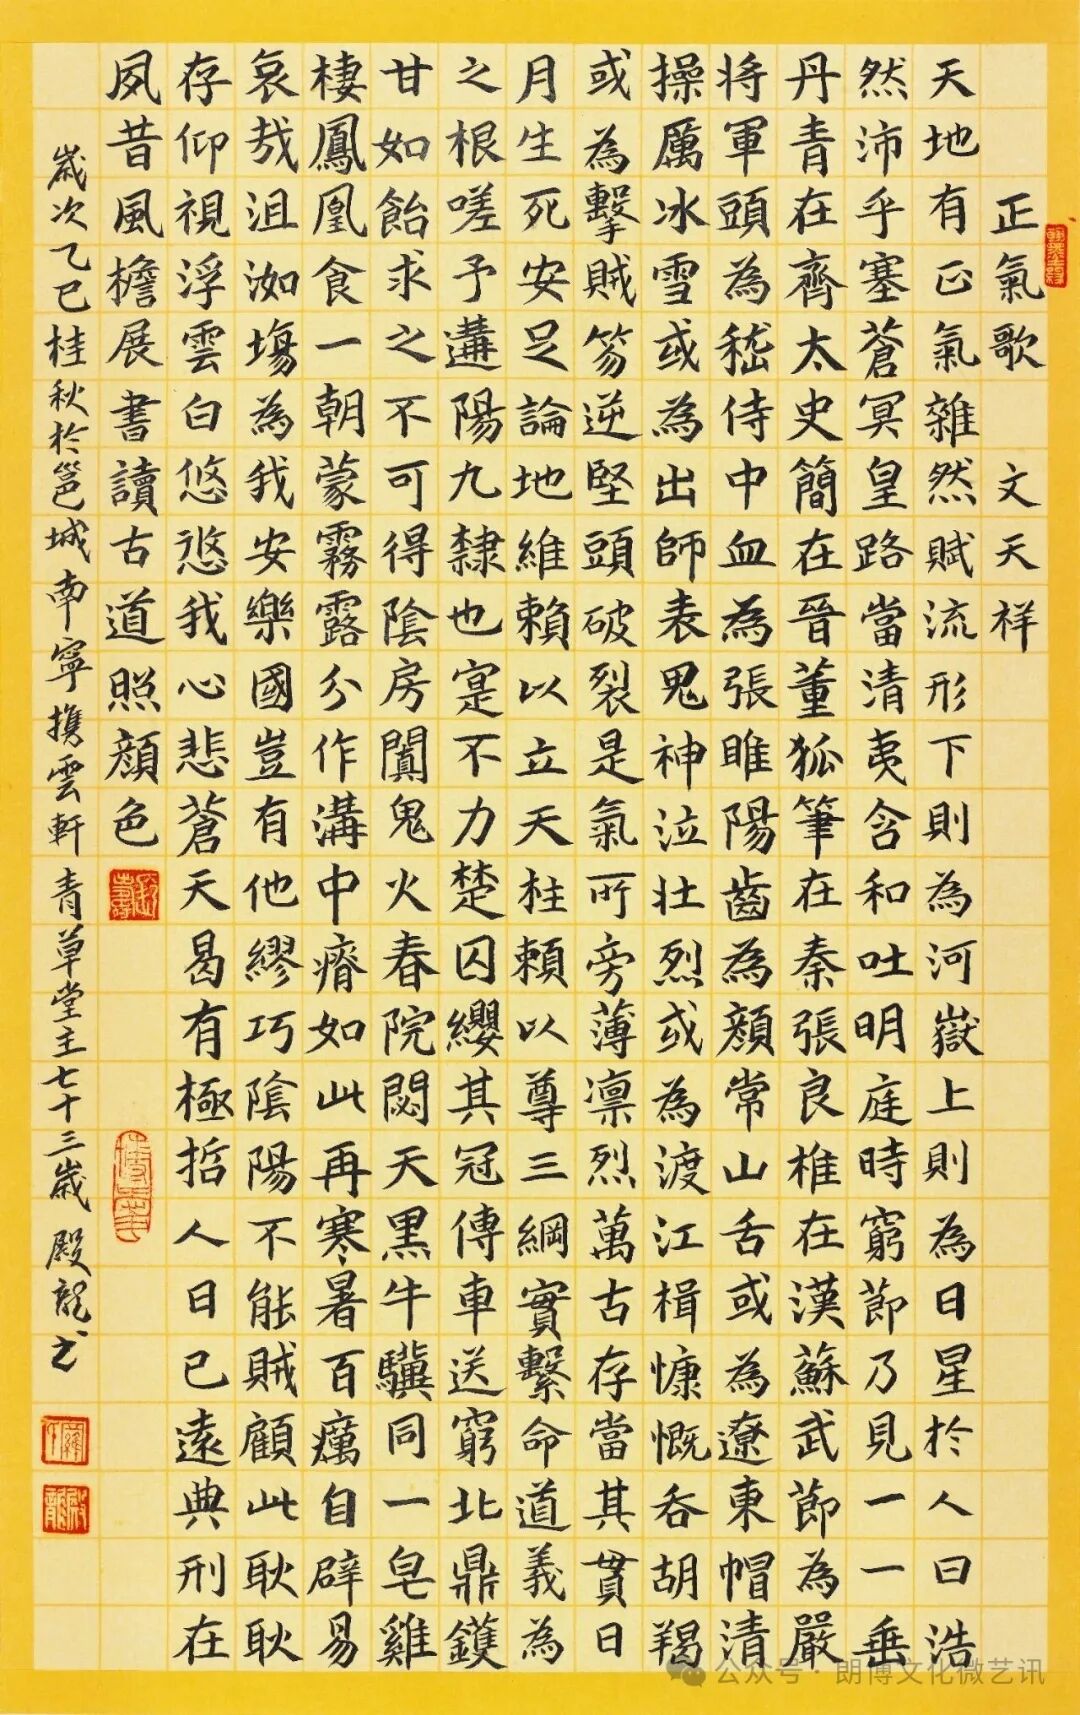 正氣歌 文天祥
天地有正氣雜然賦流形下則為河嶽上則為日星於人曰浩
然沛乎塞蒼冥皇路當清夷含和吐明庭時窮節乃見一一垂
丹青在齊太史簡在晉董狐筆在秦張良椎在漢蘇武節為嚴
将軍頭為嵇侍中血為張睢陽齒為顏常山舌或為遼東帽清
操厲冰雪或為出師表鬼神泣壯烈或為渡江楫慷慨吞胡羯
或為擊賊笏逆竪頭破裂是氣所旁薄凛烈萬古存當其貫日
月生死安足論地維賴以立天柱賴以尊三綱實繫命道義為
之根嗟予遘陽九隸也寔不力楚囚纓其冠傳車送窮北鼎鑊
甘如飴求之不可得陰房闐鬼火春院閟天黑牛驥同一皂雞
棲鳳凰食一朝蒙霧露分作溝中瘠如此再寒暑百癘自辟易
哀哉沮洳塲為我安樂國豈有他繆巧陰陽不能賊顧此耿耿
存仰視浮雲白悠悠我心悲蒼天曷有極哲人日已遠典刑在
夙昔風檐展書讀古道照顏色
歲次乙巳桂秋於邕城南寧携雲軒青草堂主七十三歲 殿龍书
公众号·朗博文化微艺讯